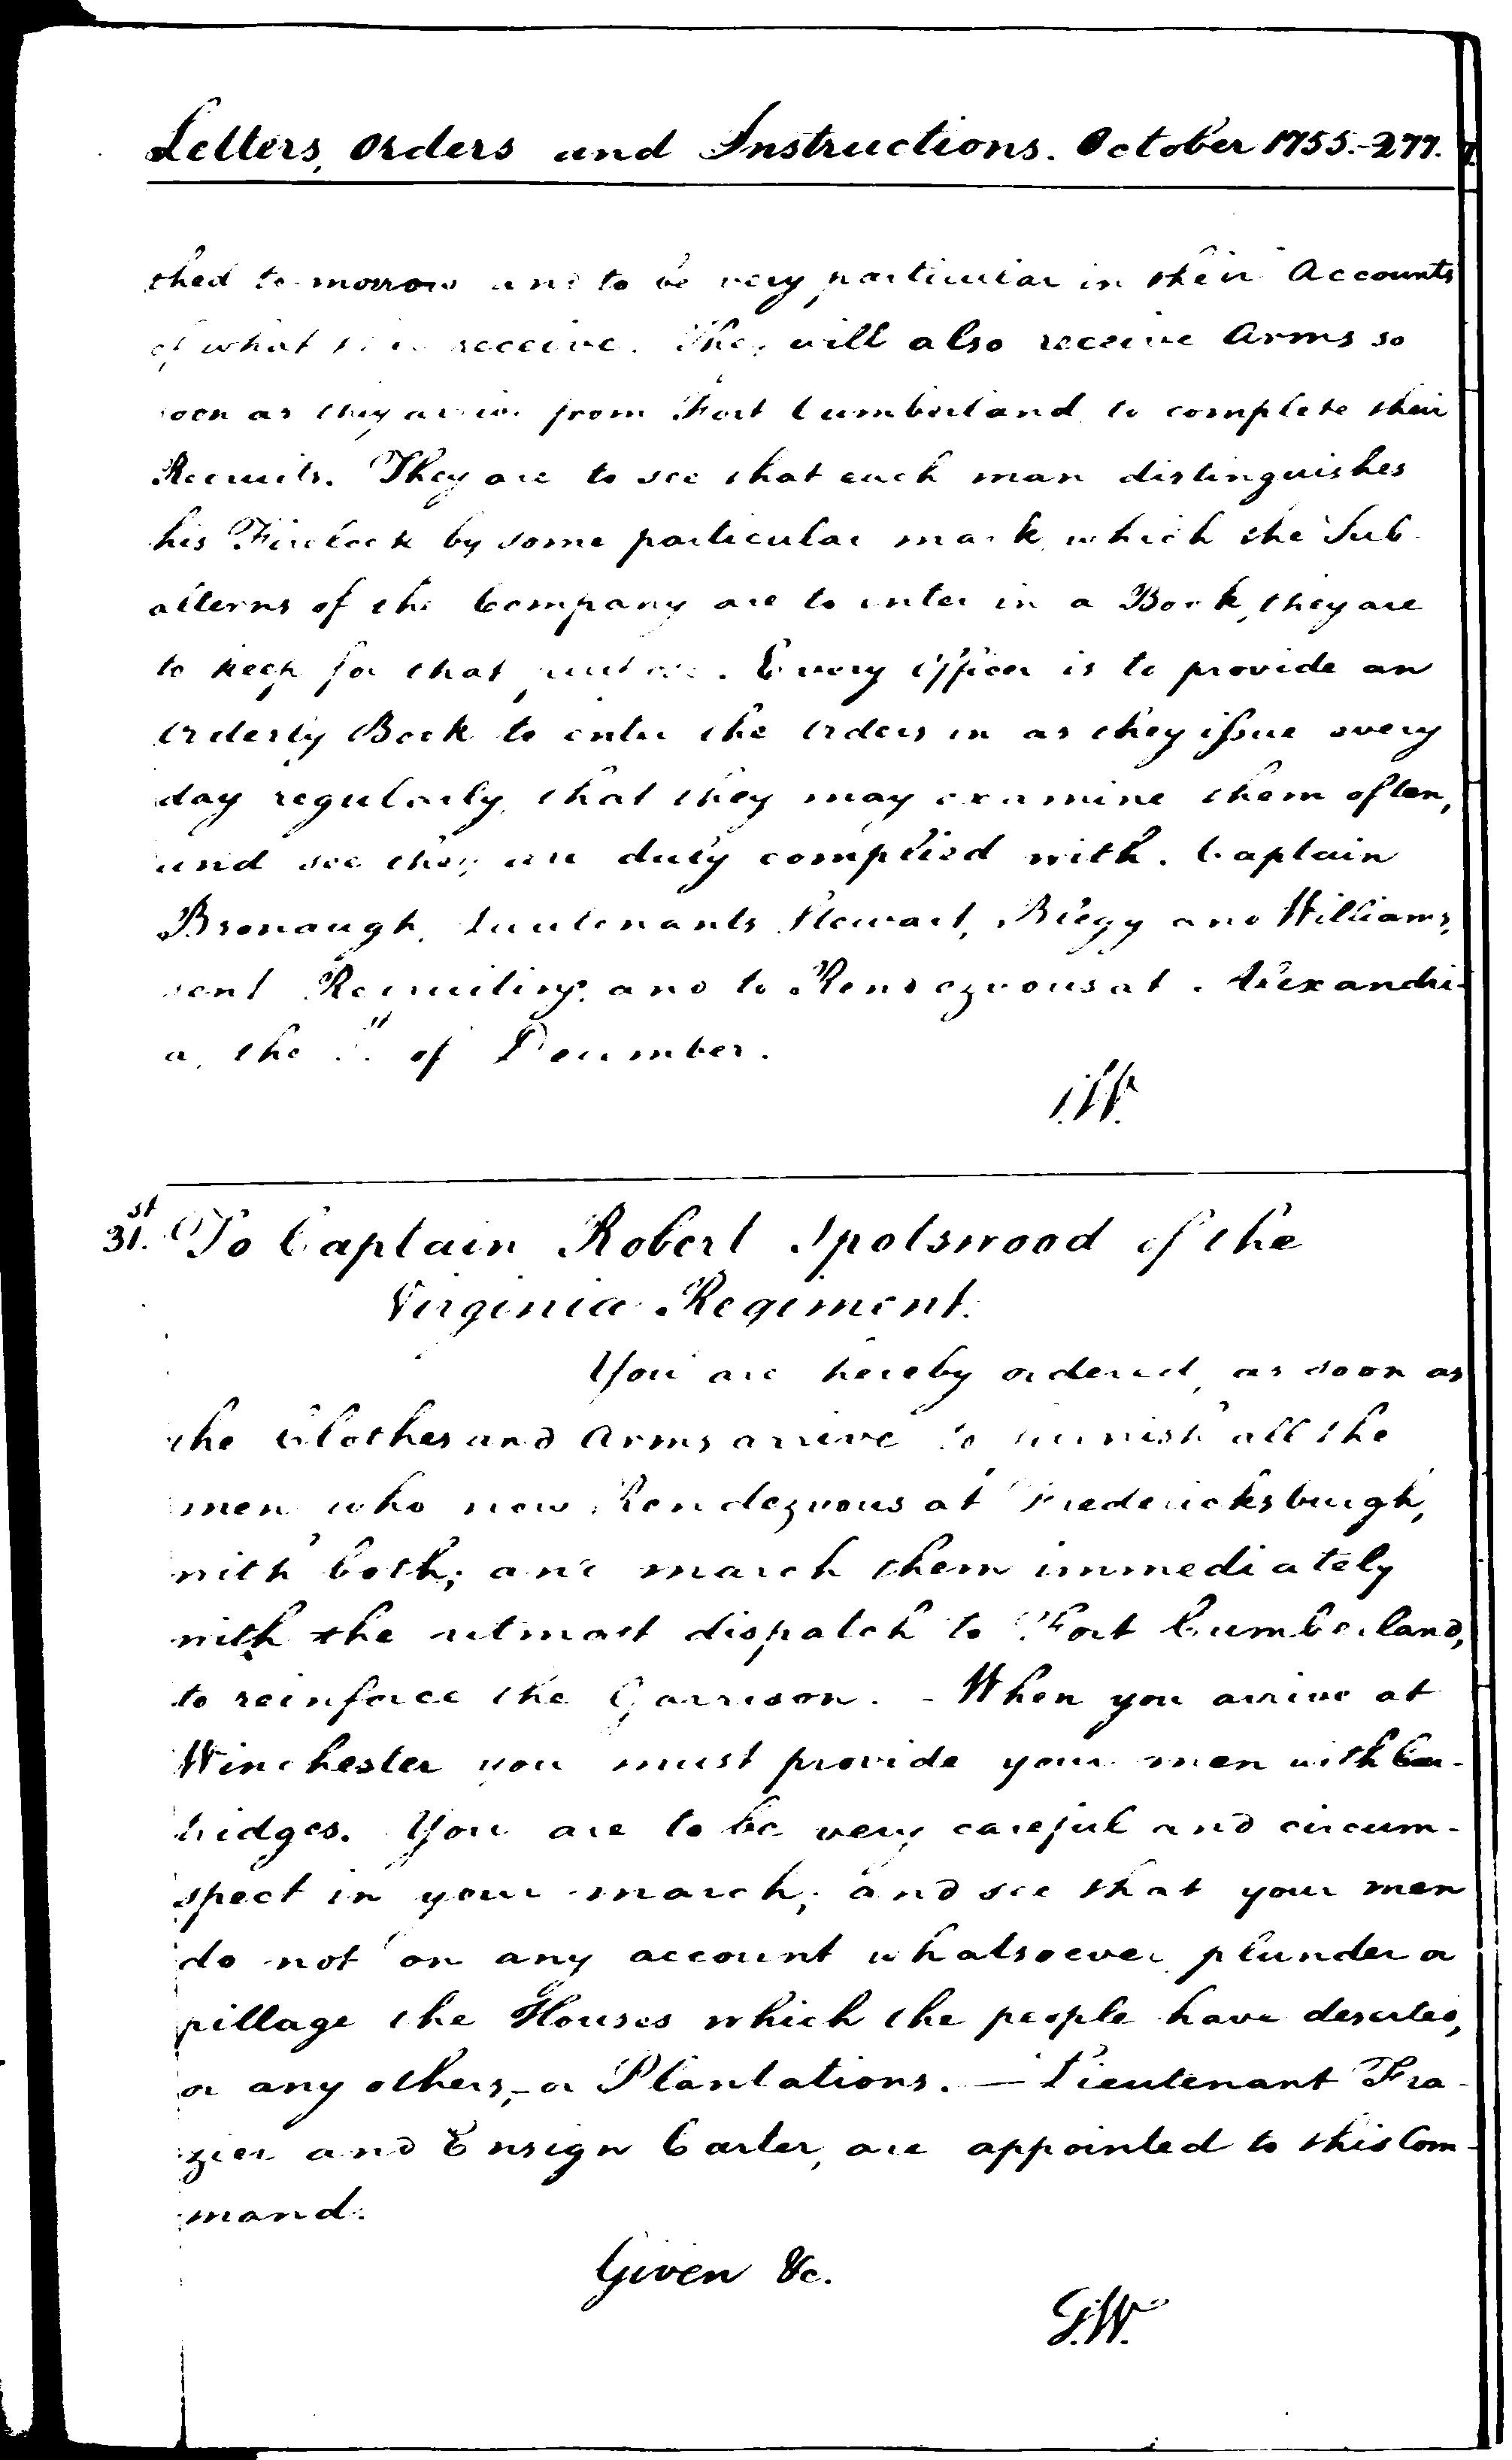 Letters, Orders and Instructions. October 1755.-277.
ched to-morrow and to be very particular in their Accounts
of what they receive. They will also receive Arms so
soon as they arrive from Fort Cumberland, to complete their
Recruits. They are to see that each man distinguishes
his Firelock by some particular mark, which the Sub-
alterns of the Company are to enter in a Book, they are
to keep for that purpose. Every Officer is to provide an
Orderly Book to enter the Orders in as they issue every
day regularly, that they may examine them often,
and see they are duly complied with. Captain
Bronaugh, Lieutenants Stewart, and Williams,
sent Recruiting; and to Rendezvous at Alexandri-
a, the of December.
G.W.
31.st To Captain Robert Spotswood of the
Virginia Regiment.
You are hereby ordered, as soon as
the Clothes and Arms arrive to furnish all the
men who now Rendezvous at Fredericksburgh,
with both; and march them immediately
with the utmost dispatch to Fort Cumberland,
to reinforce the Garrison. - When you arrive at
Winchester you must provide your men with Car-
tridges. You are to be very careful and circum-
spect in your march; and see that your men
do not on any account whatsoever, plunder or
pillage the Houses which the people have deserted,
or any others,- or Plantations. — Lieutenant Fra-
zier and Ensign Carter, are appointed to this Com-
mand.
Given &c.
G.W.